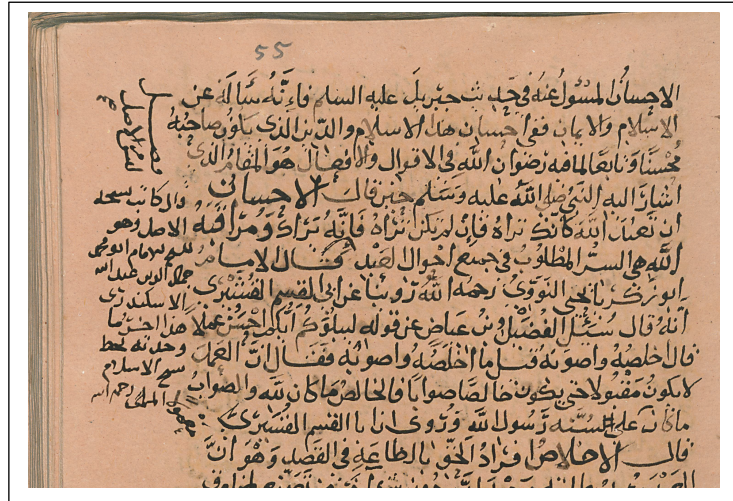 55
الاحسان المسئول عنه في حديث جبريل عليه السلم فإنه سأله عن
الاسلام والايمان ففي احسان هذا الاسلام والدين الذي يكون صاحبه
محسنا وتابعا لما فيه رضوان الله في الاقوال والافعال هو المقام الذي
اشار اليه النبي صلى الله عليه وسلم حين قال الاحسان
ان تعبد الله كانك تراه فإن لم تكن تراه فإنه يراك ومراقبة
الله هي السر المطلوب في جميع احوال العبد فقال الامام
ابو زكريا يحيى النووي رحمه الله روينا عن ابي القسم القشيري
انه قال سئل الفضيل بن عياض عن قوله ليبلوكم أيكم احسن عملا
قال اخلصه واصوبه قيل ما اخلصه واصوبه فقال ان العمل
لا يكون مقبولا حتى يكون خالصا صوابا فالخالص ما كان لله والصواب
ما كان على السنه رسول الله وروى ابا القسم القشيري
قال الاخلاص افراد الحق بالطاعة في القصد وهو ان
والكاتب نسخه
الاصل وهو
للشيخ الامام ابو محمد
جمال الدين عبد الله
الاسكندري
هذا اخر ما
وجدته بخط
شيخ الاسلام
رحمه الله